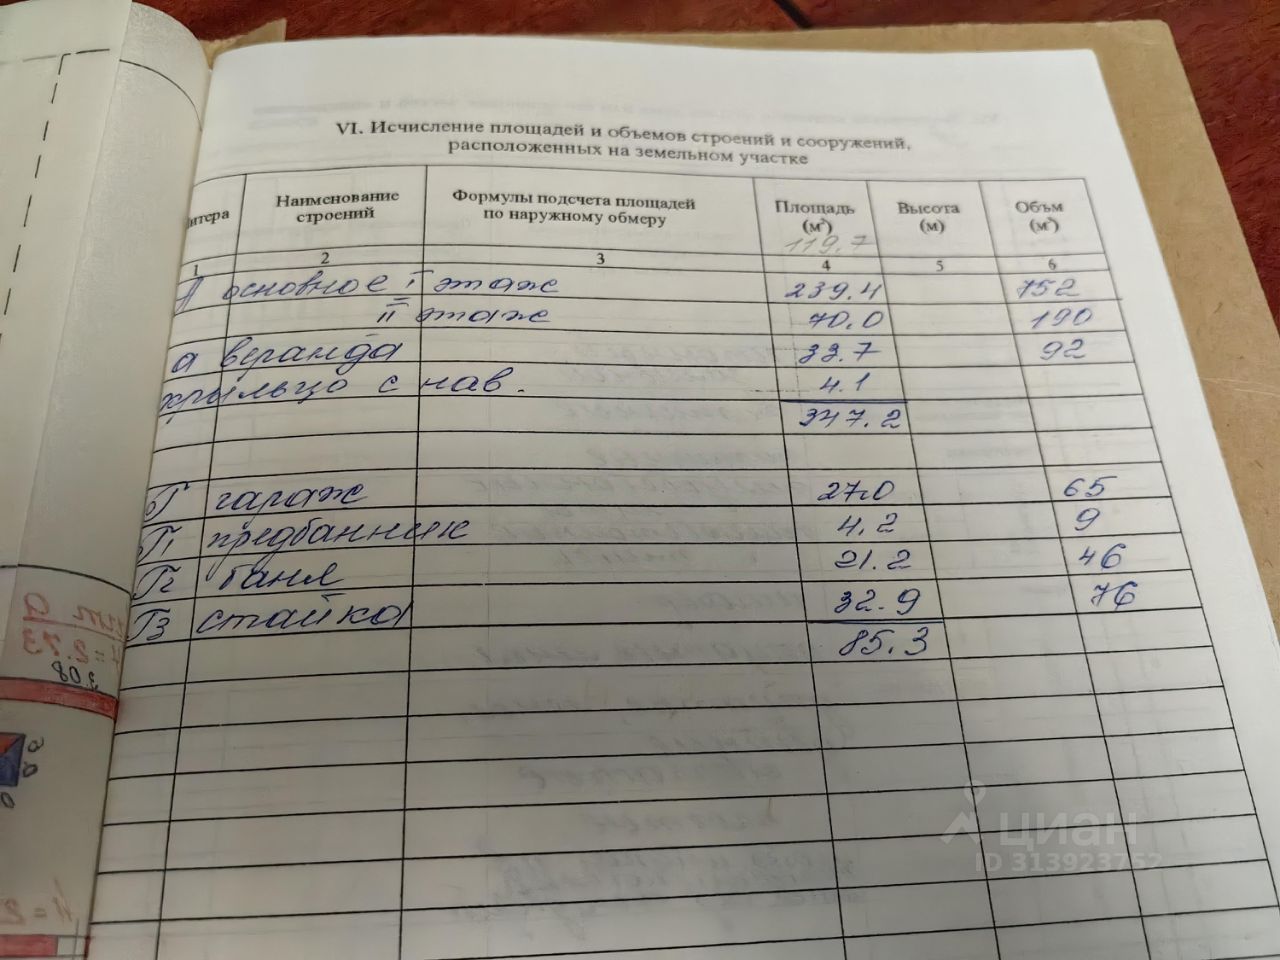 VI. Исчисление площадей и объемов строений и сооружений,
расположенных на земельном участке
итера Наименование строений Формулы подсчета площадей по наружному обмеру Площадь (м²) Высота (м) Объм (м³)
119.7
1 2 3 4 5 6
А основное I этаж 239.4 752
II этаж 70.0 190
а веранда 33.7 92
крыльцо с нав. 4.1
347.2
Г гараж 27.0 65
Г1 предбанник 4.2 9
Г2 баня 21.2 46
Г3 стайка 32.9 76
85.3
циан
ID 313923752
лит а
H=2.73
3.08